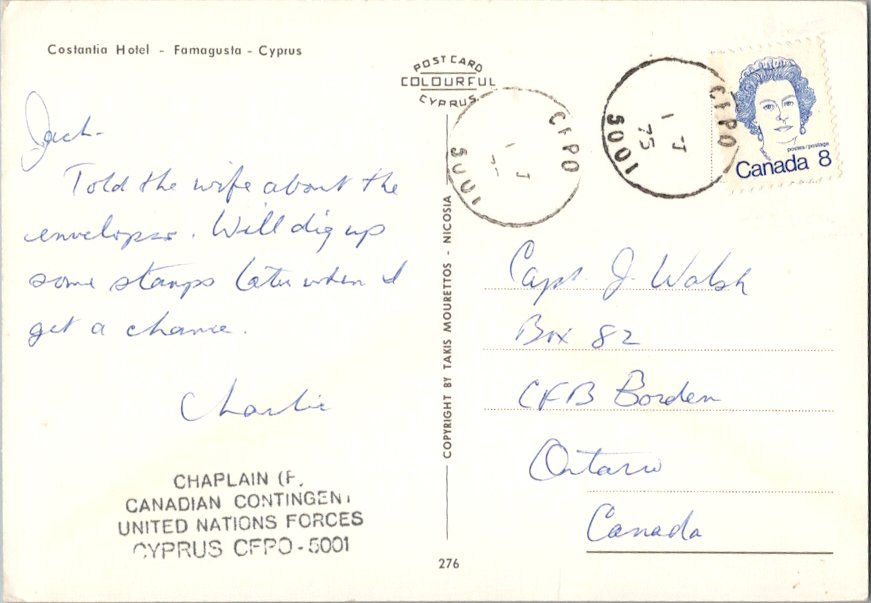 Costantia Hotel - Famagusta - Cyprus
POST CARD
COLOURFUL
CYPRUS
CFPO
I J
5001
CFPO
I J
75
5001
postes/postage
Canada 8
Jack-
Told the wife about the
envelopes. Will dig up
some stamps later when I
get a chance.
Charlie
CHAPLAIN (P.
CANADIAN CONTINGENT
UNITED NATIONS FORCES
CYPRUS CFPO-5001
COPYRIGHT BY TAKIS MOURETTOS - NICOSIA
276
Capt J. Walsh
Box 82
CFB Borden
Ontario
Canada